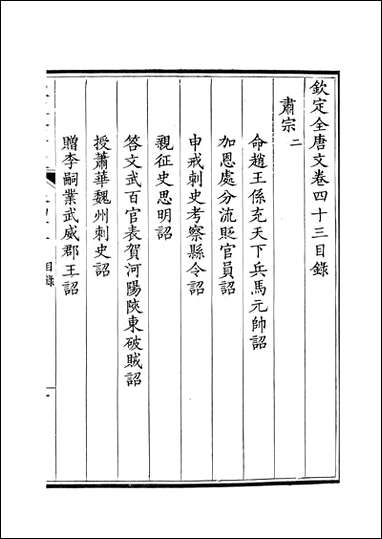 欽定全唐文卷四十三目錄
肅宗二
命趙王係充天下兵馬元帥詔
加恩處分流貶官員詔
申戒刺史考察縣令詔
親征史思明詔
答文武百官表賀河陽陝東破賊詔
授蕭華魏州刺史詔
贈李嗣業武威郡王詔
目錄